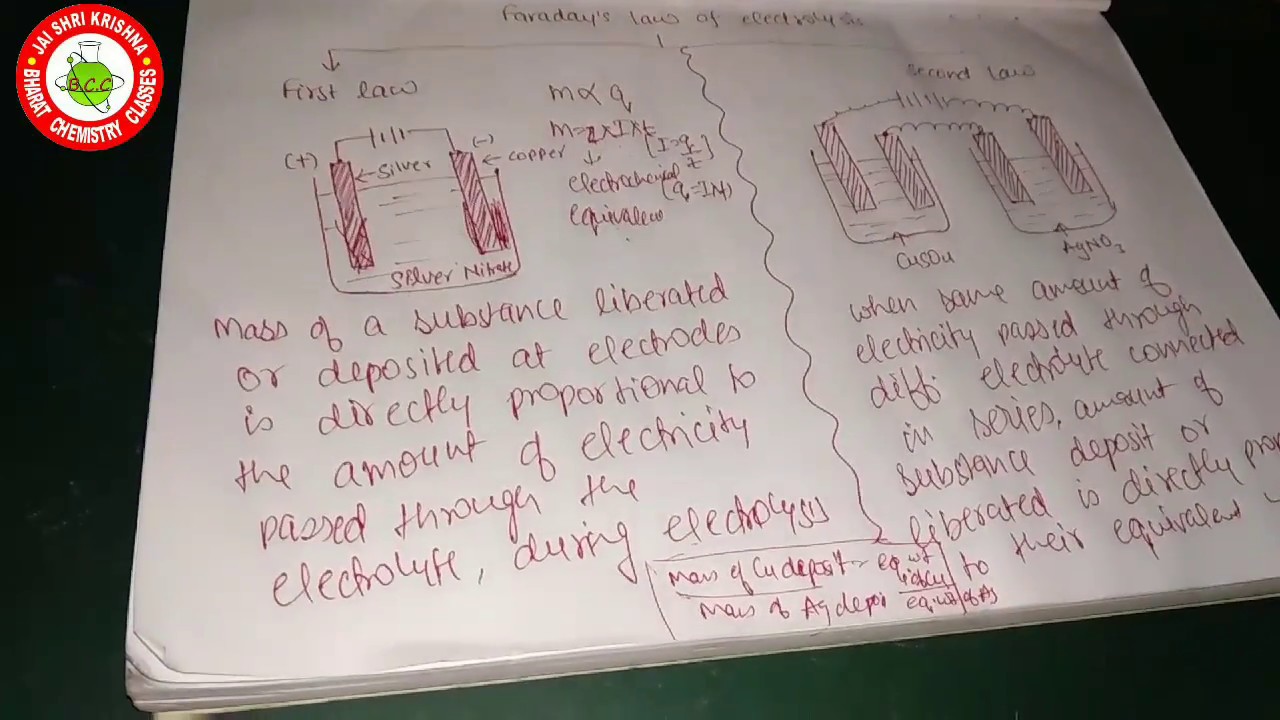 JAI SHRI KRISHNA
B.C.C
BHARAT CHEMISTRY CLASSES
Faraday's law of electrolysis
First law
(+)
(-)
silver
copper
Silver Nitrate
m ∝ q
m = Z×I×t
[I = q/t]
electrochemical
(q = It)
equivalent
Mass of a substance liberated
or deposited at electrodes
is directly proportional to
the amount of electricity
passed through the
electrolyte, during electrolysis
Second law
CuSO4
AgNO3
when same amount of
electricity passed through
diff. electrolyte connected
in series, amount of
substance deposit or
liberated is directly
to their equivalent
Mass of Cu deposit eq. wt of Cu
Mass of Ag depos eq. wt of Ag